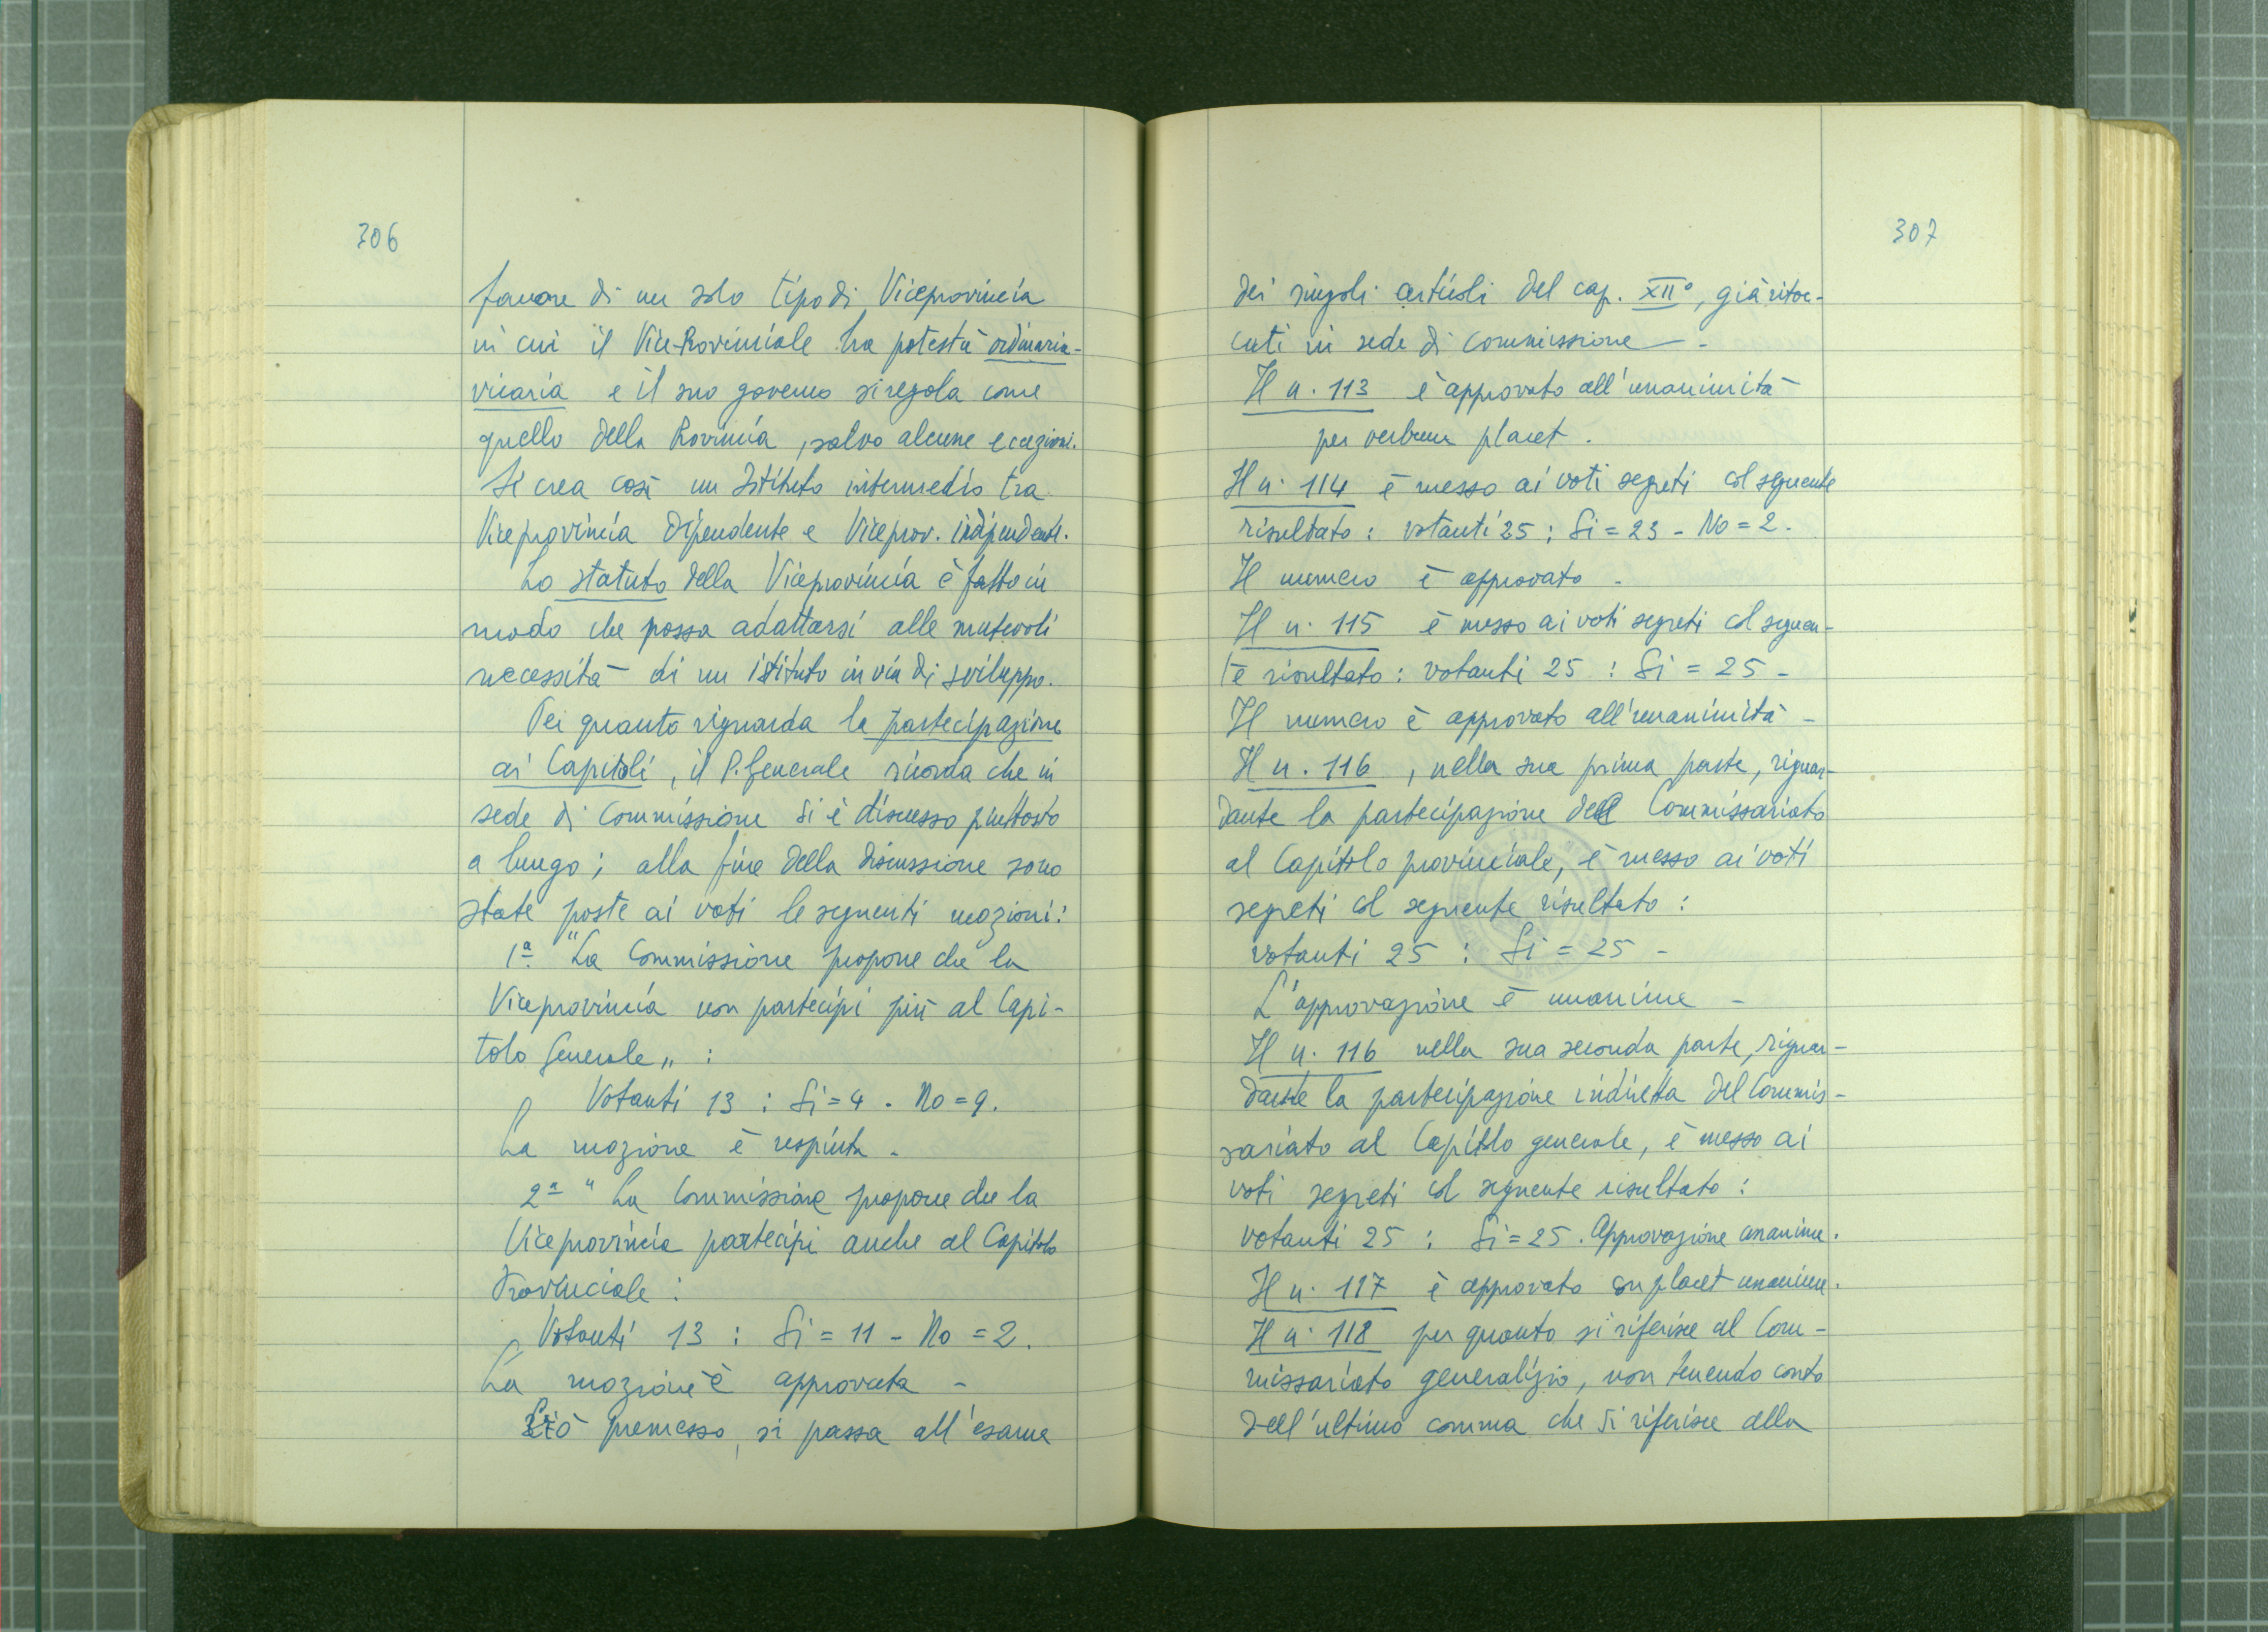 306
favore di un solo tipo di Viceprovincia
in cui il Vice-Provinciale ha potestà ordinaria-
vicaria e il suo governo si regola come
quello della Provincia, salvo alcune eccezioni.
Si crea così un Istituto intermedio tra
Viceprovincia dipendente e Viceprov. indipendente.
Lo statuto della Viceprovincia è fatto in
modo che possa adattarsi alle mutevoli
necessità di un istituto in via di sviluppo.
Per quanto riguarda la partecipazione
ai Capitoli, il P. Generale ricorda che in
sede di Commissione si è discusso piuttosto
a lungo; alla fine della discussione sono
state poste ai voti le seguenti mozioni:
1ª. "La Commissione propone che la
Viceprovincia non partecipi più al Capi-
tolo Generale„ :
Votanti 13 : Si = 4 . No = 9.
La mozione è respinta -
2ª " La Commissione propone che la
Viceprovincia partecipi anche al Capitolo
Provinciale :
Votanti 13 : Si = 11 - No = 2.
La mozione è approvata -
Ciò premesso, si passa all'esame
307
dei singoli articoli del cap. XII°, già ritoc-
cati in sede di commissione -
Il n. 113 è approvato all'unanimità
per verbum placet.
Il n. 114 è messo ai voti segreti col seguente
risultato : votanti 25 ; Si = 23 - No = 2.
Il numero è approvato -
Il n. 115 è messo ai voti segreti col seguen-
te risultato : votanti 25 : Si = 25 -
Il numero è approvato all'unanimità -
Il n. 116, nella sua prima parte, riguar-
dante la partecipazione del Commissariato
al Capitolo provinciale, è messo ai voti
segreti col seguente risultato :
votanti 25 : Si = 25 -
L'approvazione è unanime -
Il n. 116 nella sua seconda parte, riguar-
dante la partecipazione indiretta del Commis-
sariato al Capitolo generale, è messo ai
voti segreti col seguente risultato :
votanti 25 : Si = 25. Approvazione unanime.
Il n. 117 è approvato con placet unanime.
Il n. 118 per quanto si riferisce al Com-
missariato generalizio, non tenendo conto
dell'ultimo comma che si riferisce alla